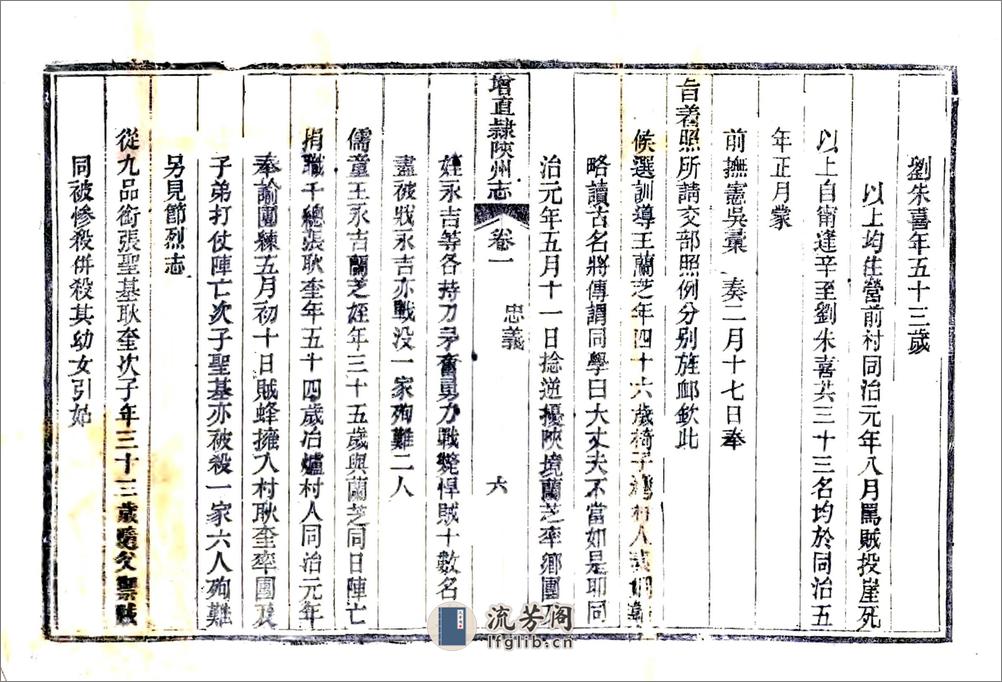 劉朱喜年五十三歲
以上均住營前村同治元年八月罵賊投崖死
以上自甯逢辛至劉朱喜共三十三名均於同治五
年正月蒙
前撫憲吳彙 奏二月十七日奉
旨着照所請交部照例分別旌卹欽此
候選訓導王蘭芝年四十六歲
略讀古名將傳謂同學曰大丈夫不當如是耶同
治元年五月十一日捻逆擾陜境蘭芝率鄉團
增直隸陝州志 卷一 忠義 六
姪永吉等各持刀矛奮勇力戰斃悍賊十數名
盡被戕永吉亦戰没一家殉難二人
儒童王永吉蘭芝姪年三十五歲與蘭芝同日陣亡
捐職千總張耿奎年五十四歲冶爐村人同治元年
奉諭團練五月初十日賊蜂擁入村耿奎率團及
子弟打仗陣亡次子聖基亦被殺一家六人殉難
另見節烈志
從九品銜張聖基耿奎次子年三十三歲隨父禦賊
同被慘殺併殺其幼女引姑
流芳阁
lfglib.com